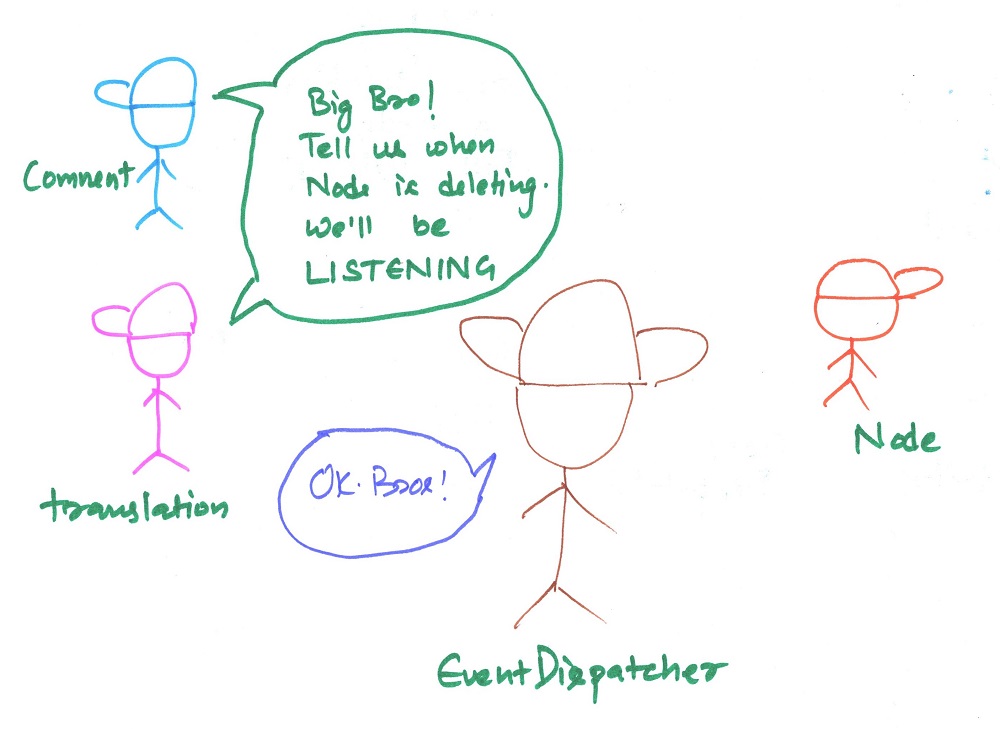 Big Bro!
Tell us when
Node is deleting.
We'll be
LISTENING
Comment
translation
OK. Bros!
Node
EventDispatcher